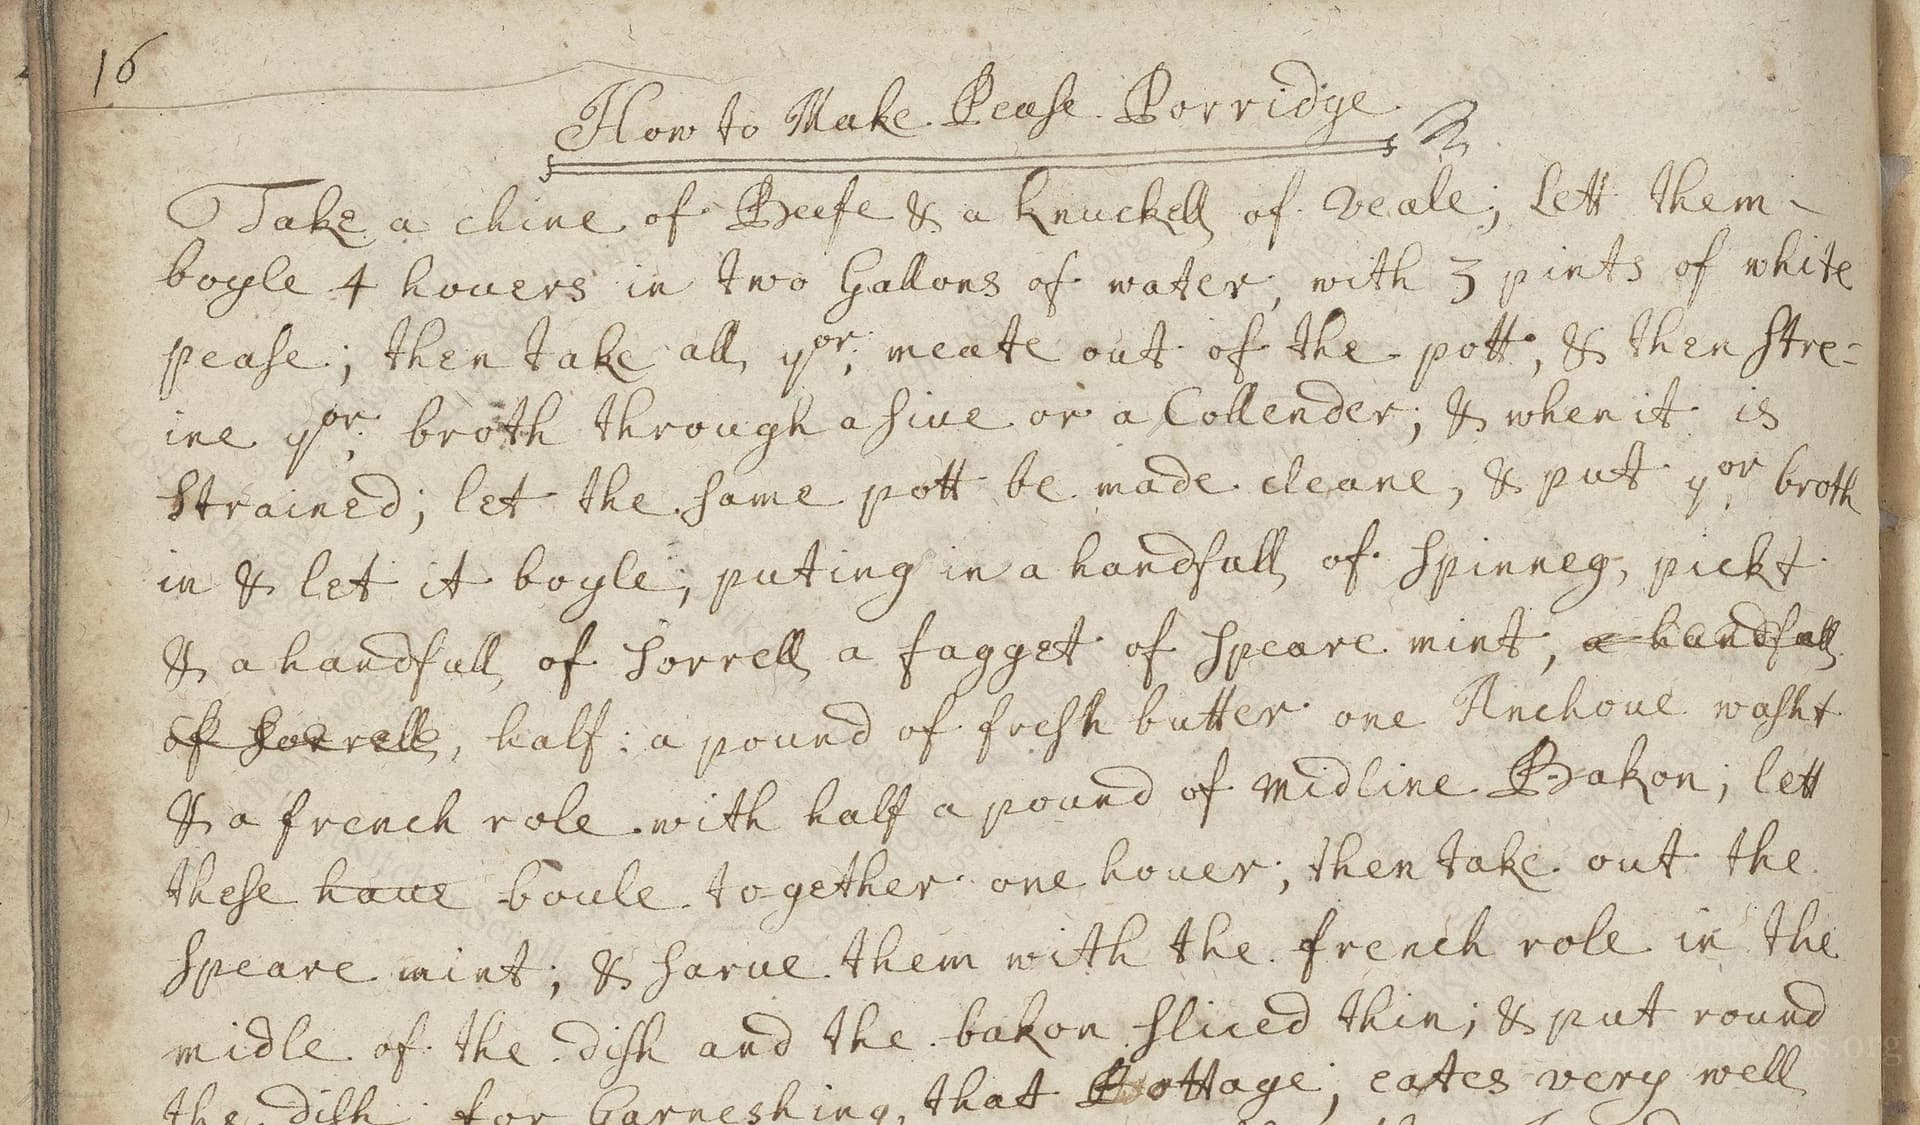 16
How to Make Pease Porridge
Take a chine of Beefe & a knuckell of veale; Lett them
boyle 4 houers in two Gallons of water, with 3 pints of white
pease; then take all yor: meate out of the pott; & then stre=
ine yor: broth through a siue or a Collender; & when it is
strained; let the same pott be made cleane, & put yor broth
in & let it boyle; puting in a handfull of spinneg, pickt
& a handfull of sorrell a fagget of speare mint, a handfull
of sorrell, half: a pound of fresh butter one Anchoue washt
& a french role with half a pound of midline Bakon; lett
these haue boule together one houer; then take out the
speare mint; & sarue them with the french role in the
midle of the dish and the bakon sliced thin; & put round
the dish for Garneshing, that Pottage; eates very well